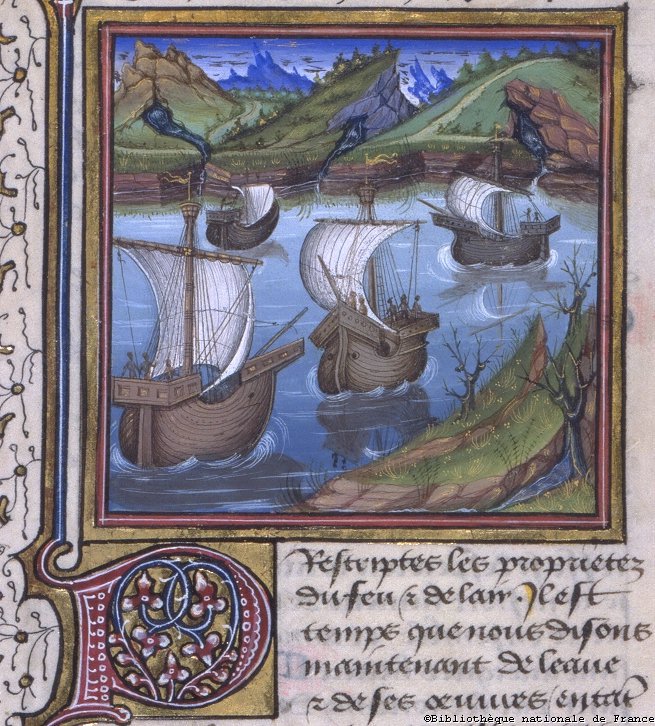 P
Rescriptes les proprietez
du feu ⁊ de lair . Il est
temps que nous disons
maintenant de leaue
⁊ de ses oeuures / en tāt
©Bibliothèque nationale de France